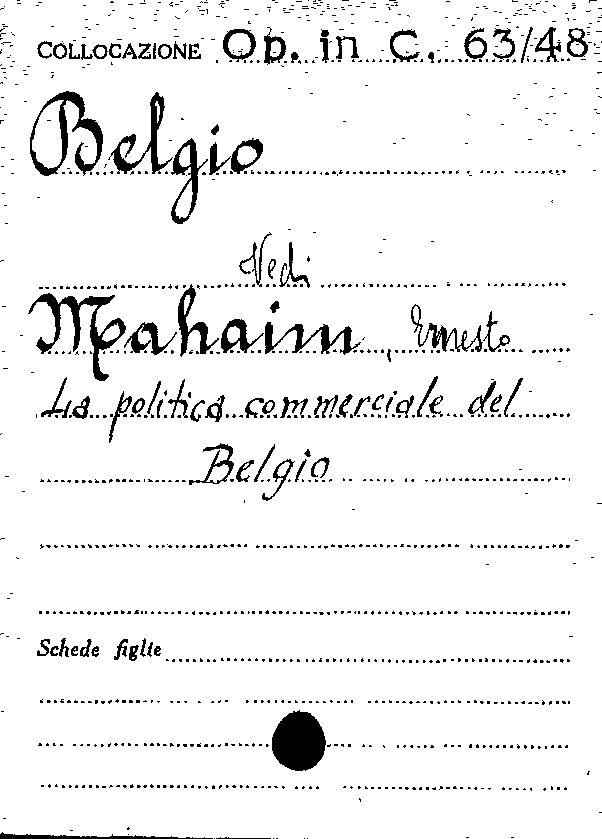 COLLOCAZIONE Op. in C. 63/48
Belgio
Vedi
Mahaim, Ernesto
La politica commerciale del
Belgio
Schede figlie